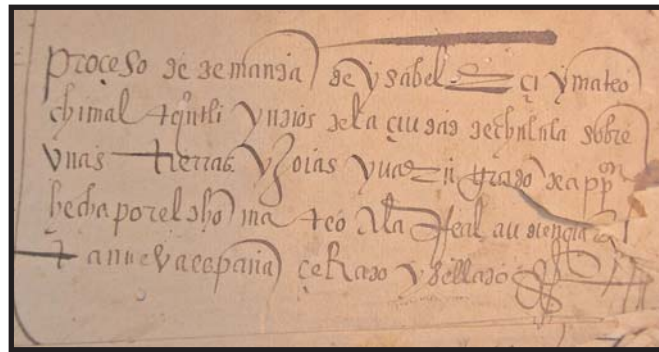 proçeso de demanda de ysabel çi y mateo
chimal tecutli yndios de la çiudad de chulula sobre
unas tierras y va en grado de app[on]
hecha por el dho mateo a la rreal audiençia
nueva españa çerrado y sellado